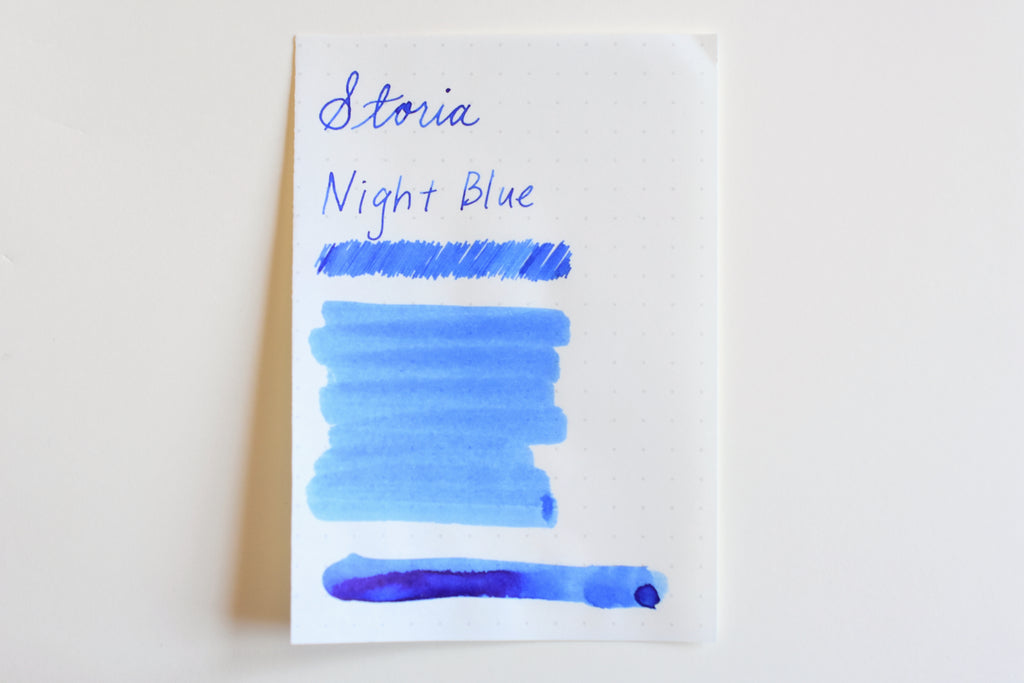 Storia
Night Blue